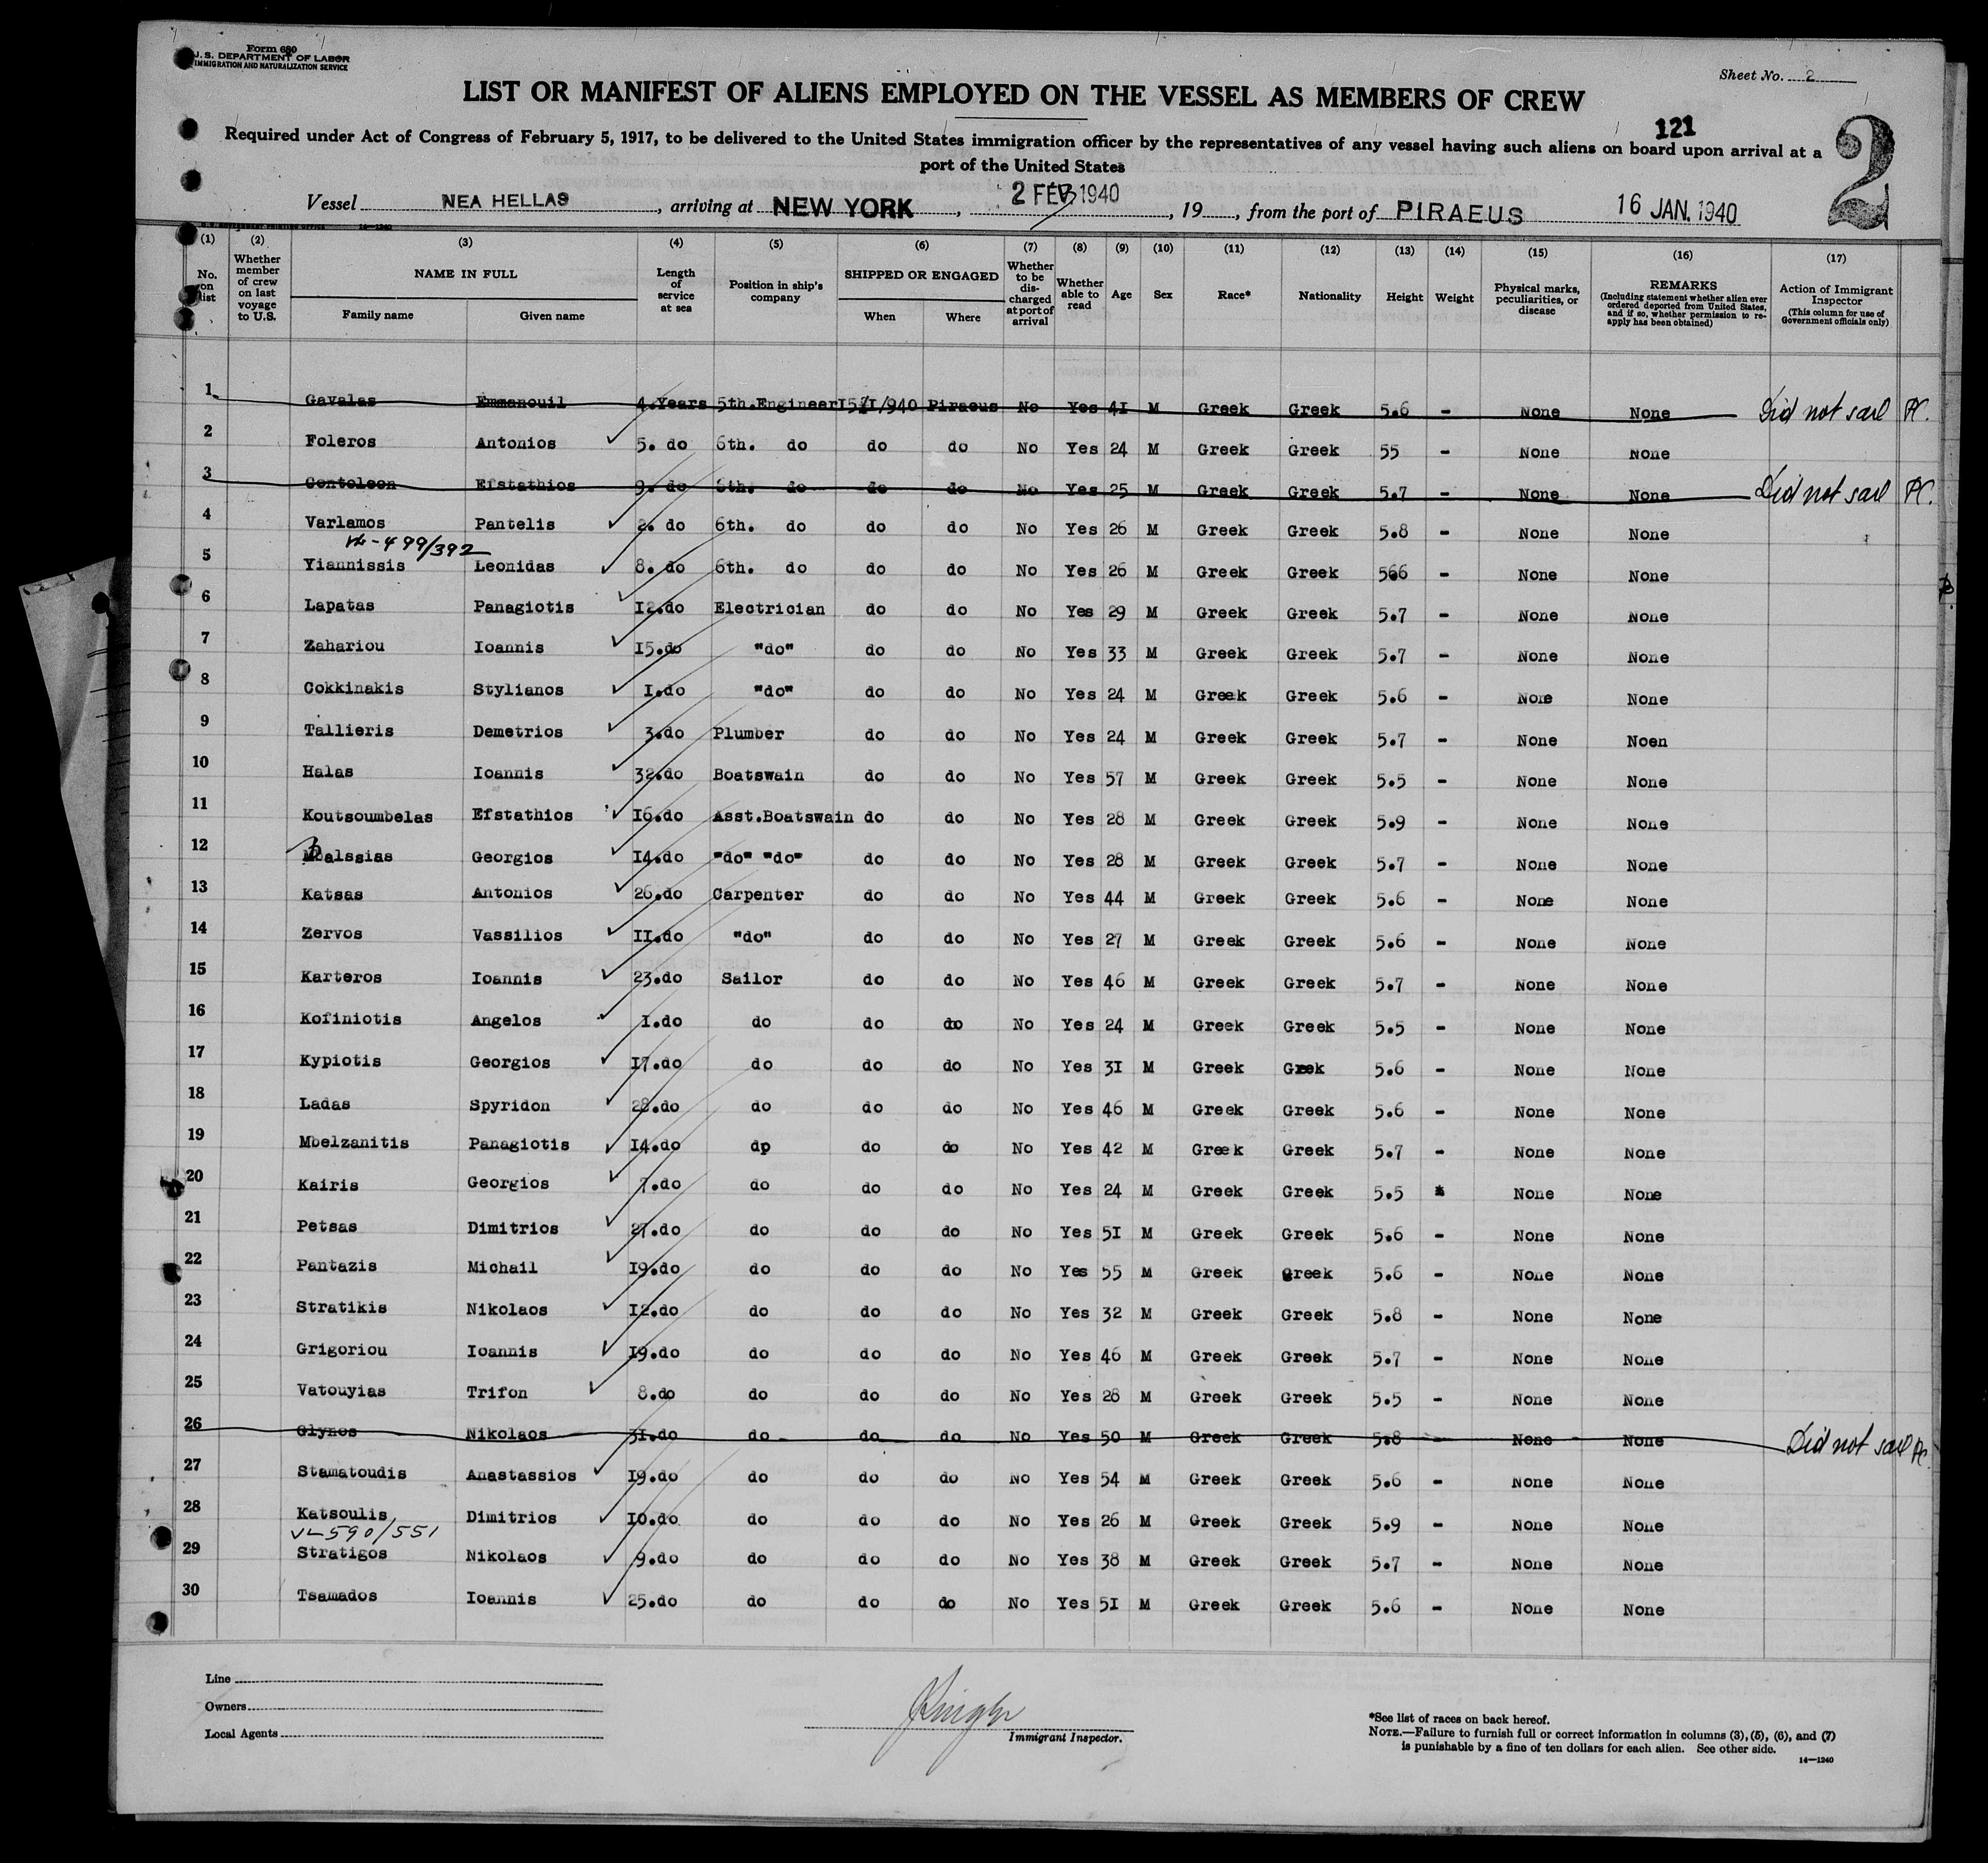 Form 680
U. S. DEPARTMENT OF LABOR
IMMIGRATION AND NATURALIZATION SERVICE
Sheet No. 2
LIST OR MANIFEST OF ALIENS EMPLOYED ON THE VESSEL AS MEMBERS OF CREW
121
2
Required under Act of Congress of February 5, 1917, to be delivered to the United States immigration officer by the representatives of any vessel having such aliens on board upon arrival at a
port of the United States
Vessel NEA HELLAS, arriving at NEW YORK, 2 FEB 1940, 19, from the port of PIRAEUS 16 JAN. 1940
14-1240
(1) (2) (3) (4) (5) (6) (7) (8) (9) (10) (11) (12) (13) (14) (15) (16) (17)
No. on list
Whether member of crew on last voyage to U.S.
NAME IN FULL
Family name Given name
Length of service at sea
Position in ship's company
SHIPPED OR ENGAGED
When Where
Whether to be discharged at port of arrival
Whether able to read
Age
Sex
Race*
Nationality
Height
Weight
Physical marks, peculiarities, or disease
REMARKS
(Including statement whether alien ever ordered deported from United States, and if so, whether permission to reapply has been obtained)
Action of Immigrant Inspector
(This column for use of Government officials only)
1 Gavalas Emmanouil 4.Years 5th.Engineer 15/1/940 Piraeus No Yes 41 M Greek Greek 5.6 - None None Did not sail
2 Foleros Antonios 5. do 6th. do do do No Yes 24 M Greek Greek 55 - None None
3 Contoleon Efstathios 9. do 6th. do do do No Yes 25 M Greek Greek 5.7 - None None Did not sail
4 Varlamos Pantelis 2. do 6th. do do do No Yes 26 M Greek Greek 5.8 - None None
499/392
5 Yiannissis Leonidas 8. do 6th. do do do No Yes 26 M Greek Greek 566 - None None
6 Lapatas Panagiotis 12.do Electrician do do No Yes 29 M Greek Greek 5.7 - None None
7 Zahariou Ioannis 15.do "do" do do No Yes 33 M Greek Greek 5.7 - None None
8 Cokkinakis Stylianos I.do "do" do do No Yes 24 M Greek Greek 5.6 - None None
9 Tallieris Demetrios 3.do Plumber do do No Yes 24 M Greek Greek 5.7 - None Noen
10 Halas Ioannis 32.do Boatswain do do No Yes 57 M Greek Greek 5.5 - None None
11 Koutsoumbelas Efstathios 16.do Asst.Boatswain do do No Yes 28 M Greek Greek 5.9 - None None
12 Mbalssias Georgios 14.do "do" "do" do do No Yes 28 M Greek Greek 5.7 - None None
13 Katsas Antonios 26.do Carpenter do do No Yes 44 M Greek Greek 5.6 - None None
14 Zervos Vassilios II.do "do" do do No Yes 27 M Greek Greek 5.6 - None None
15 Karteros Ioannis 23.do Sailor do do No Yes 46 M Greek Greek 5.7 - None None
16 Kofiniotis Angelos I.do do do do No Yes 24 M Greek Greek 5.5 - None None
17 Kypiotis Georgios 17.do do do do No Yes 31 M Greek Greek 5.6 - None None
18 Ladas Spyridon 28.do do do do No Yes 46 M Greek Greek 5.6 - None None
19 Mbelzanitis Panagiotis 14.do dp do do No Yes 42 M Greek Greek 5.7 - None None
20 Kairis Georgios 7.do do do do No Yes 24 M Greek Greek 5.5 - None None
21 Petsas Dimitrios 27.do do do do No Yes 51 M Greek Greek 5.6 - None None
22 Pantazis Michail 19.do do do do No Yes 55 M Greek Greek 5.6 - None None
23 Stratikis Nikolaos 12.do do do do No Yes 32 M Greek Greek 5.8 - None None
24 Grigoriou Ioannis 19.do do do do No Yes 46 M Greek Greek 5.7 - None None
25 Vatouyias Trifon 8.do do do do No Yes 28 M Greek Greek 5.5 - None None
26 Glynos Nikolaos 31.do do do do No Yes 50 M Greek Greek 5.8 - None None Did not sail
27 Stamatoudis Anastassios 19.do do do do No Yes 54 M Greek Greek 5.6 - None None
28 Katsoulis Dimitrios 10.do do do do No Yes 26 M Greek Greek 5.9 - None None
590/551
29 Stratigos Nikolaos 9.do do do do No Yes 38 M Greek Greek 5.7 - None None
30 Tsamados Ioannis 25.do do do do No Yes 51 M Greek Greek 5.6 - None None
Line
Owners
Local Agents
Immigrant Inspector.
*See list of races on back hereof.
NOTE.—Failure to furnish full or correct information in columns (3), (5), (6), and (7)
is punishable by a fine of ten dollars for each alien. See other side.
14—1240